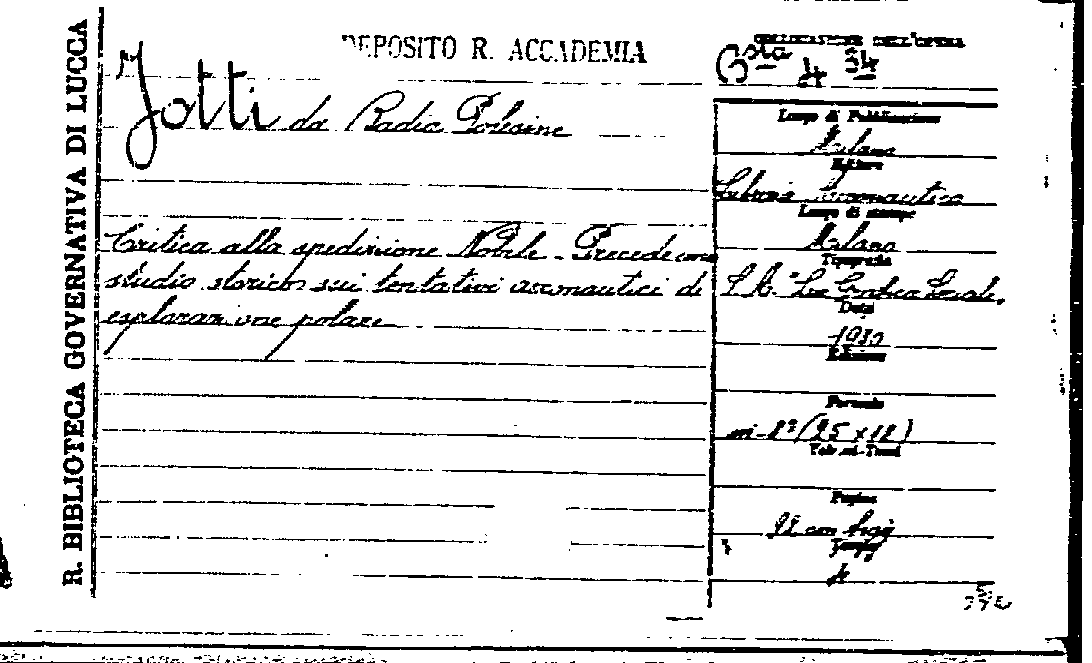 R. BIBLIOTECA GOVERNATIVA DI LUCCA
DEPOSITO R. ACCADEMIA
Jotti da Badia Polesine
Critica alla spedizione Nobile - Precede uno
studio storico sui tentativi aeronautici di
esplorazione polare
COLLOCAZIONE DELL'OPERA
Bsta 4 34
Luogo di Pubblicazione
Milano
Editore
Libreria Aeronautica
Luogo di stampa
Milano
Tipografia
S. A.
Data
1930
Edizione
Formato
in-8° (25 x 18)
Vol.
Pagine
92 con
4